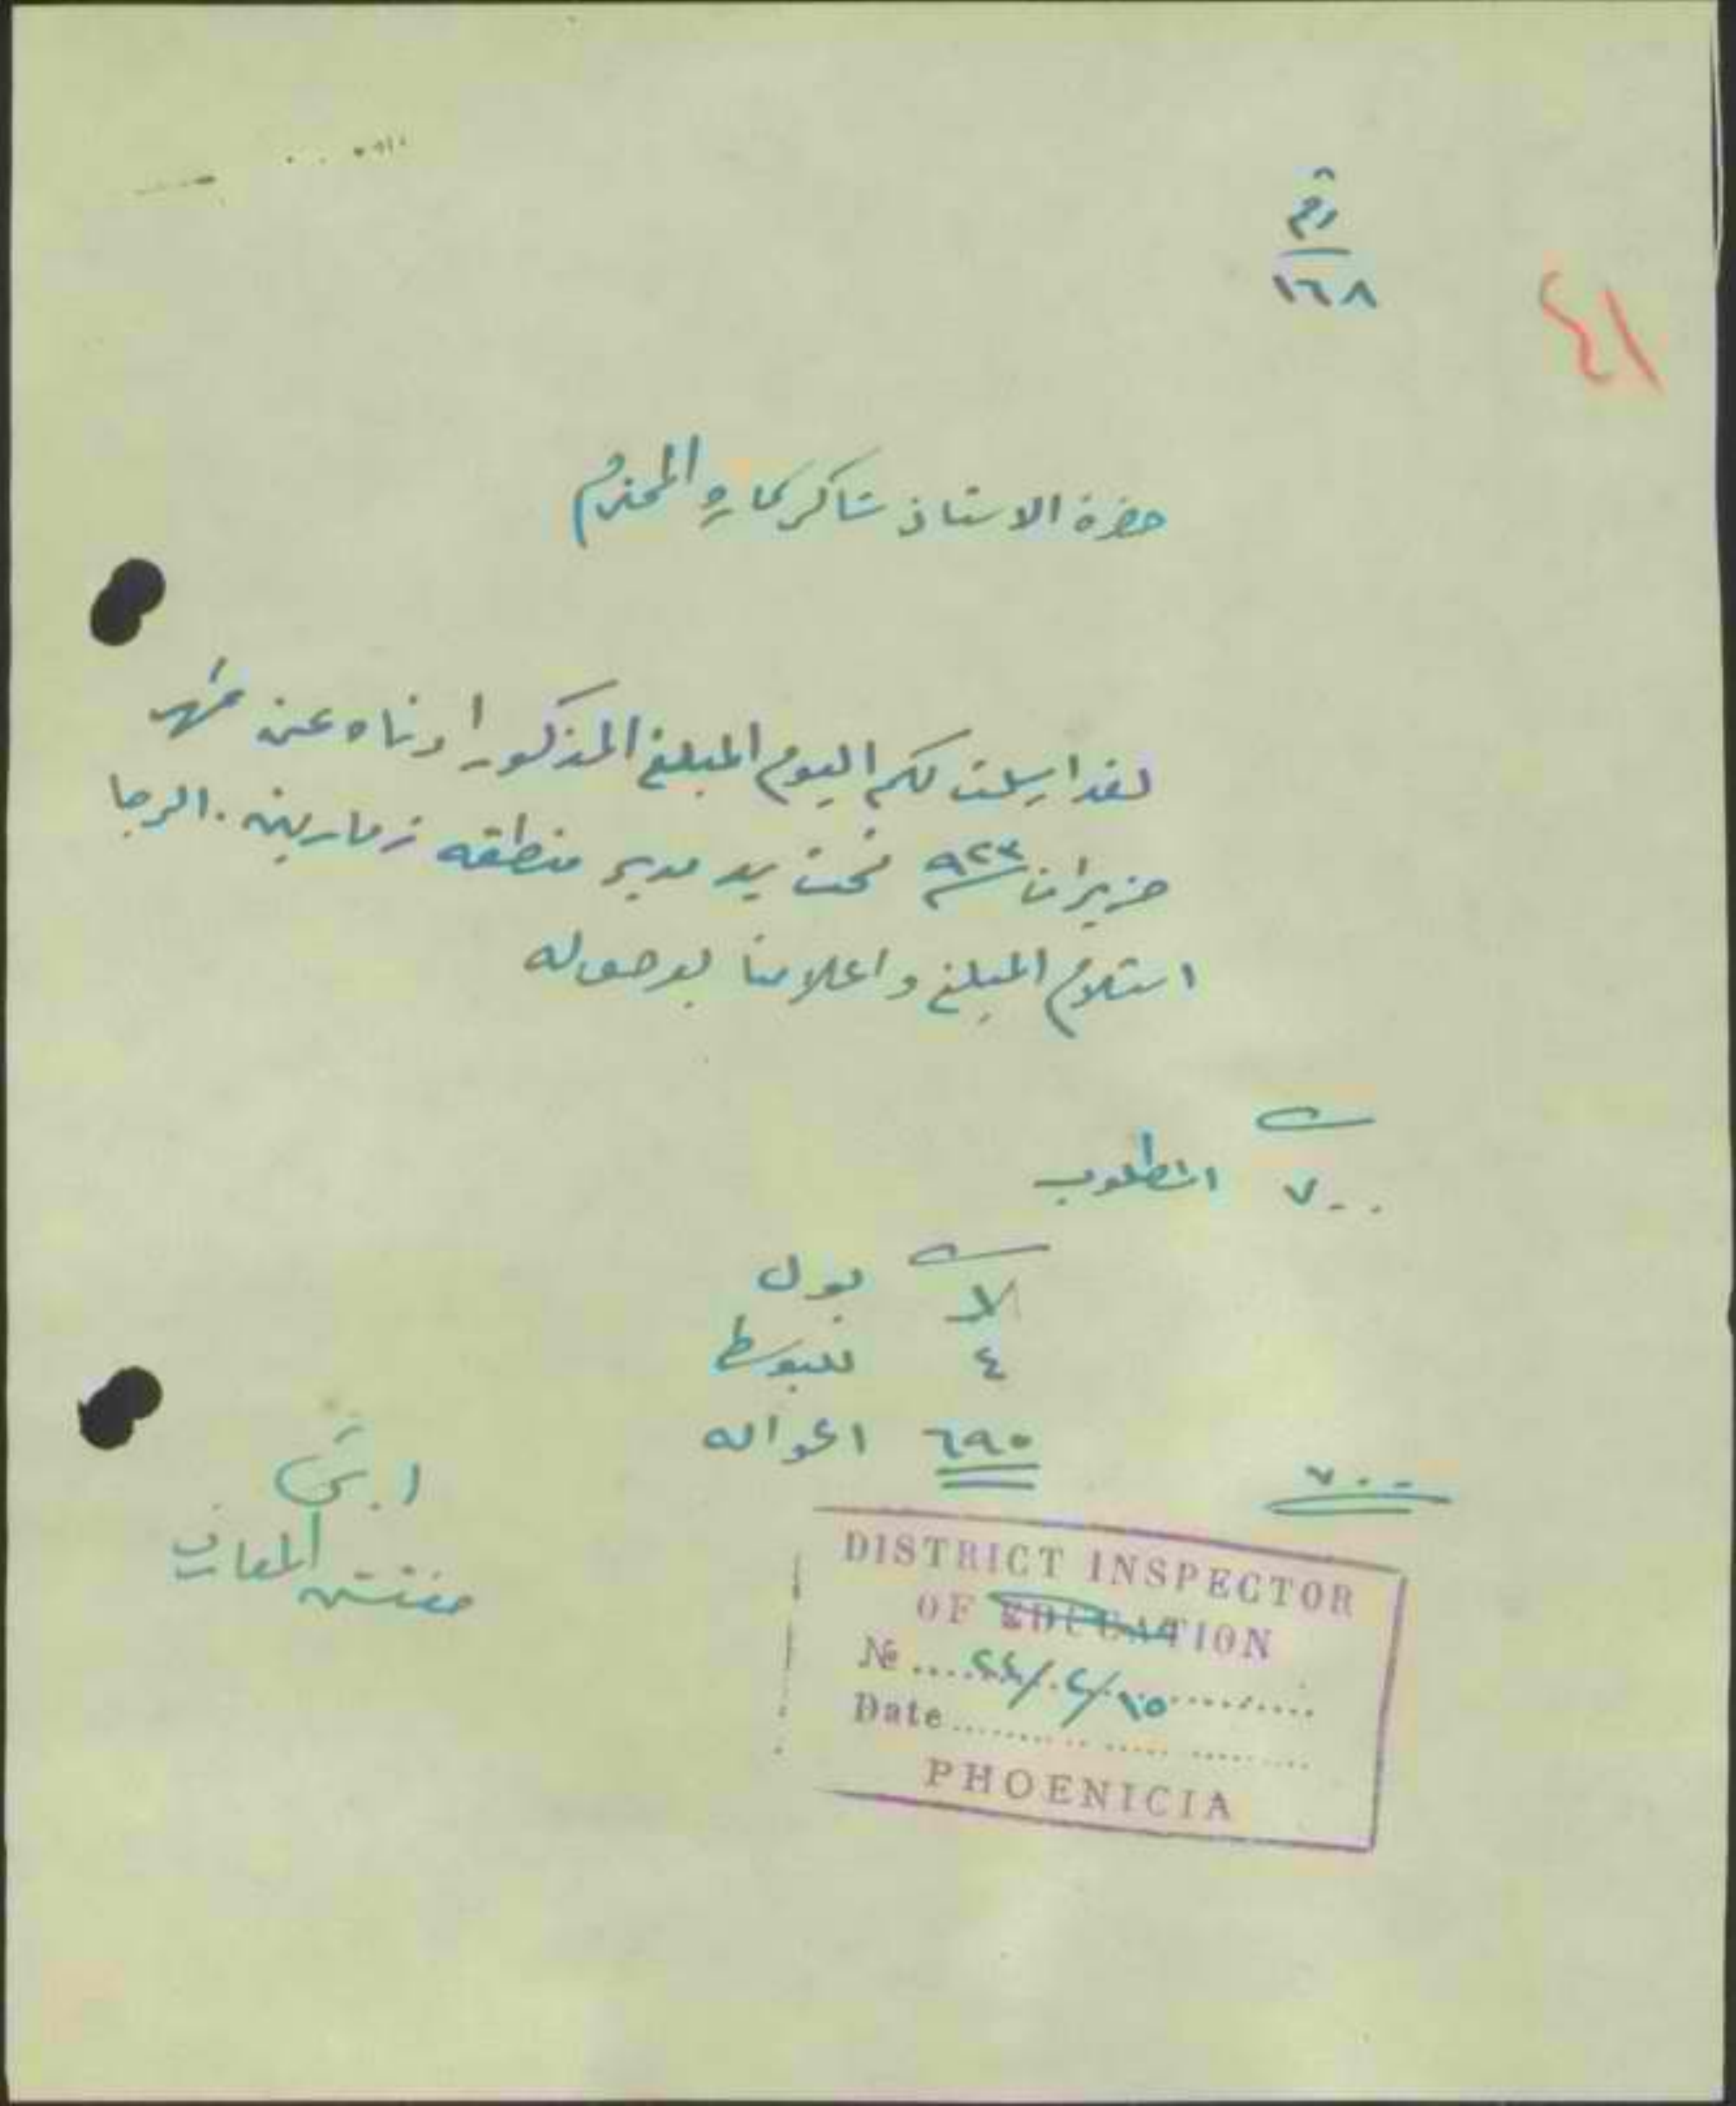 رقم
١٦٨
٤١
حضرة الاستاذ شاكر المحترم
لقد ارسلت لكم اليوم المبلغ المذكور ادناه عن شهر
حزيران ٩٢٣ تحت يد مدير منطقه زمارين. الرجا
استلام المبلغ واعلامنا بوصوله
٧٠٠ المطلوب
بول
٤ للبوسطة
٦٩٥ الحواله
٧٠٠
مفتش المعارف
DISTRICT INSPECTOR
OF EDUCATION
№
Date
PHOENICIA